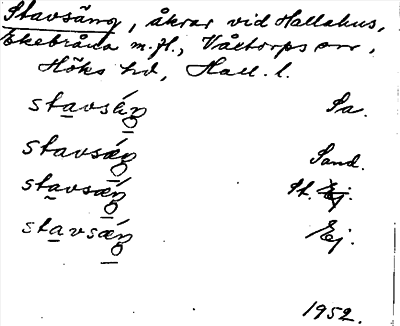 Stavsäng, åkrar vid Hallahus,
Ekebråna m.fl., Våxtorps sn,
Höks hd, Hall. l.
stavsɛ́ŋ Sa.
stavsǽŋ Sand.
stavsǽŋ St. Ej.
stavsǽŋ Ej.
1952.